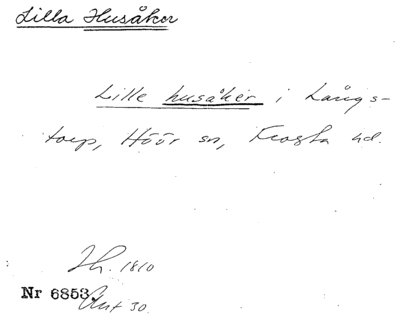 Lilla Husåker
Lille husåker i Långs-
torp, Höör sn, Frosta hd.
Th. 1810
Nr 6853.
Akt 30.